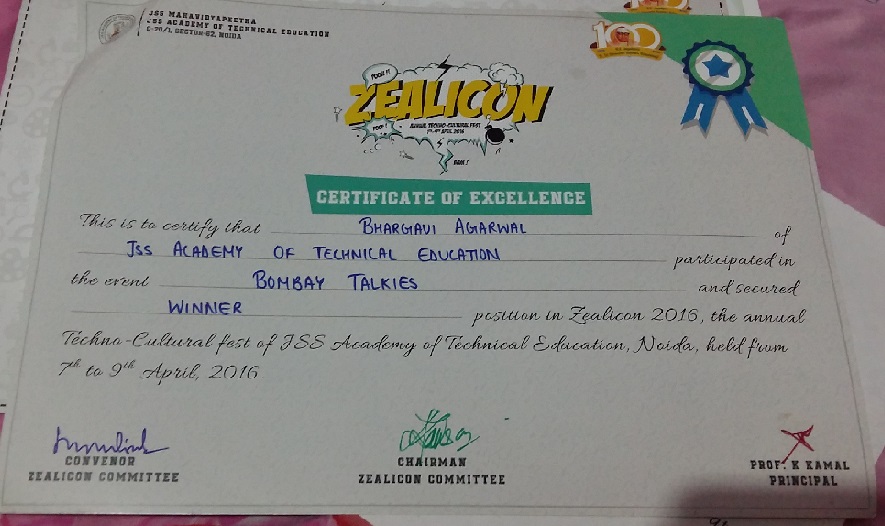 JSS MAHAVIDYAPEETHA
JSS ACADEMY OF TECHNICAL EDUCATION
C-20/1, SECTOR-62, NOIDA
100
POOF!!
ZEALICON
ANNUAL TECHNO-CULTURAL FEST
7th-9th APRIL 2016
BAM!
CERTIFICATE OF EXCELLENCE
This is to certify that BHARGAVI AGARWAL of
JSS ACADEMY OF TECHNICAL EDUCATION participated in
the event BOMBAY TALKIES and secured
WINNER position in Zealicon 2016, the annual
Techno-Cultural fest of JSS Academy of Technical Education, Noida, held from
7th to 9th April, 2016
CONVENOR
ZEALICON COMMITTEE
CHAIRMAN
ZEALICON COMMITTEE
PROF. K KAMAL
PRINCIPAL